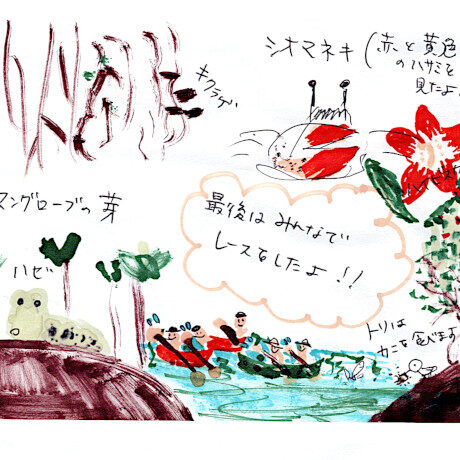 シオマネキ (赤と黄色
のハサミを
見たよ
キクラゲ
マングローブの芽
ハゼ
最後は みんなで
レースをしたよ!!
トリは
カニを食べます